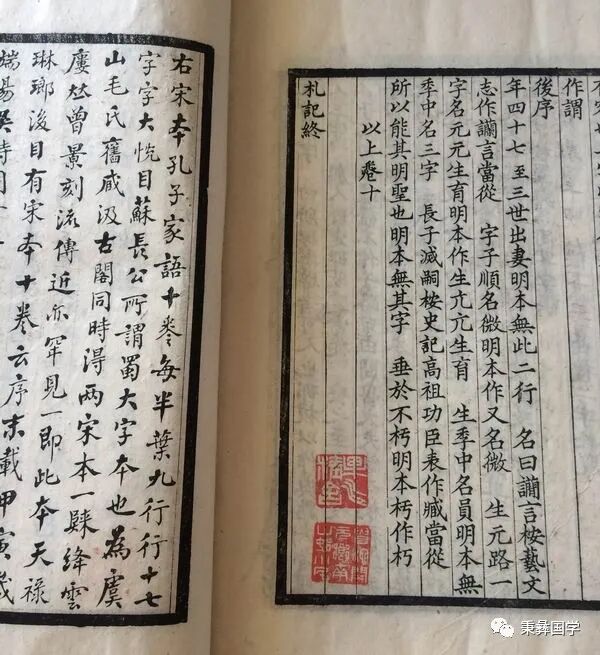 作謂
後序
年四十七 至三世出妻明本無此二行 名曰讕言桉藝文
志作讕言當從 字子順名微明本作又名微 生元路一
字名元元生育明本作生亢亢生育 生季中名員明本無
季中名三字 長子滅嗣桉史記高祖功臣表作臧當從
所以能其明聖也明本無其字 垂於不朽明本朽作朽
以上卷十
札記終
右宋本孔子家語十卷每半葉九行行十七
字字大悅目蘇長公所謂蜀大字本也為虞
山毛氏舊藏汲古閣同時得两宋本一歸絳雲
廔曾景刻流傳近亦罕見一即此本天祿
琳瑯後目有宋本十卷云序末載甲寅歲
端陽吳時用
秉彝国学